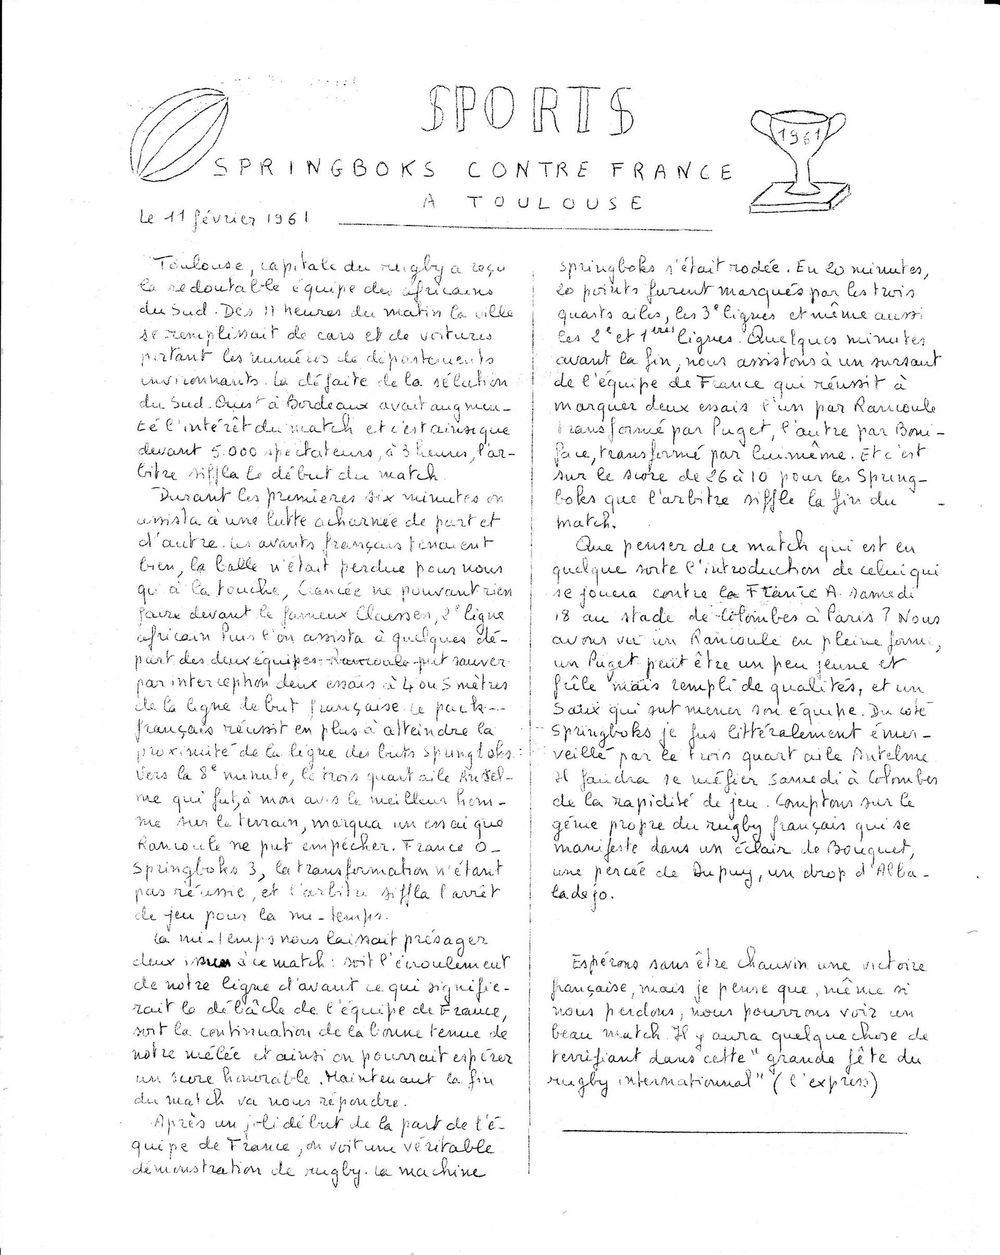 SPORTS
1961
SPRINGBOKS CONTRE FRANCE
A TOULOUSE
Le 11 février 1961
Toulouse, capitale du rugby a reçu
la redoutable équipe des africains
du Sud. Dès 11 heures du matin la ville
se remplissait de cars et de voitures
portant les numéros de départements
environnants. La défaite de la sélection
du Sud-Ouest à Bordeaux avait augmen-
té l'intérêt du match et c'est ainsi que
devant 5.000 spectateurs, à 3 heures, l'ar-
bitre siffla le début du match.
Durant les premieres six minutes on
assista à une lutte acharnée de part et
d'autre. Les avants français tenaient
bien, la balle n'était perdue pour nous
qu'à la touche, Lancée ne pouvant rien
faire devant le fameux Claessen, 2e ligne
africain. Puis l'on assista à quelques dé-
part des deux équipes. Rancoule put sauver
par interception deux essais à 4 ou 5 mètres
de la ligne de but française. Le pack
français réussit en plus à atteindre la
proximité de la ligne des buts springboks.
Vers la 8e minute, le trois quart aile Antel-
me qui fut, à mon avis le meilleur hom-
me sur le terrain, marqua un essai que
Rancoule ne put empêcher. France 0-
Springboks 3, la transformation n'étant
pas réussie, et l'arbitre siffla l'arrêt
de jeu pour la mi-temps.
La mi-temps nous laissait présager
deux issues à ce match : soit l'écroulement
de notre ligne d'avant ce qui signifie-
rait la débâcle de l'équipe de France,
soit la continuation de la bonne tenue de
notre mêlée et ainsi on pourrait espérer
un score honorable. Maintenant la fin
du match va nous répondre.
Après un joli début de la part de l'é-
quipe de France, on voit une véritable
démonstration de rugby. La machine
springboks s'était rodée. En 20 minutes,
20 points furent marqués par les trois
quarts ailes, les 3e lignes et même aussi
les 2e et 1ères lignes. Quelques minutes
avant la fin, nous assistons à un sursaut
de l'équipe de France qui réussit à
marquer deux essais l'un par Rancoule
transformé par Puget, l'autre par Boni-
face, transformé par lui-même. Et c'est
sur le score de 26 à 10 pour les Spring-
boks que l'arbitre siffle la fin du
match.
Que penser de ce match qui est en
quelque sorte l'introduction de celui qui
se jouera contre la France A. samedi
18 au stade de Colombes à Paris ? Nous
avons vu un Rancoule en pleine forme,
un Puget peut être un peu jeune et
frêle mais rempli de qualités, et un
Saux qui sut mener son équipe. Du coté
Springboks je fus littéralement émer-
veillé par le trois quart aile Antelme.
Il faudra se méfier samedi à Colombes
de la rapidité de jeu. Comptons sur le
génie propre du rugby français qui se
manifeste dans un éclair de Bouquet,
une percée de Dupuy, un drop d'Alba-
ladejo.
Espérons sans être chauvin une victoire
française, mais je pense que, même si
nous perdons, nous pourrons voir un
beau match. Il y aura quelque chose de
terrifiant dans cette " grande fête du
rugby internationnal " ( l'express)